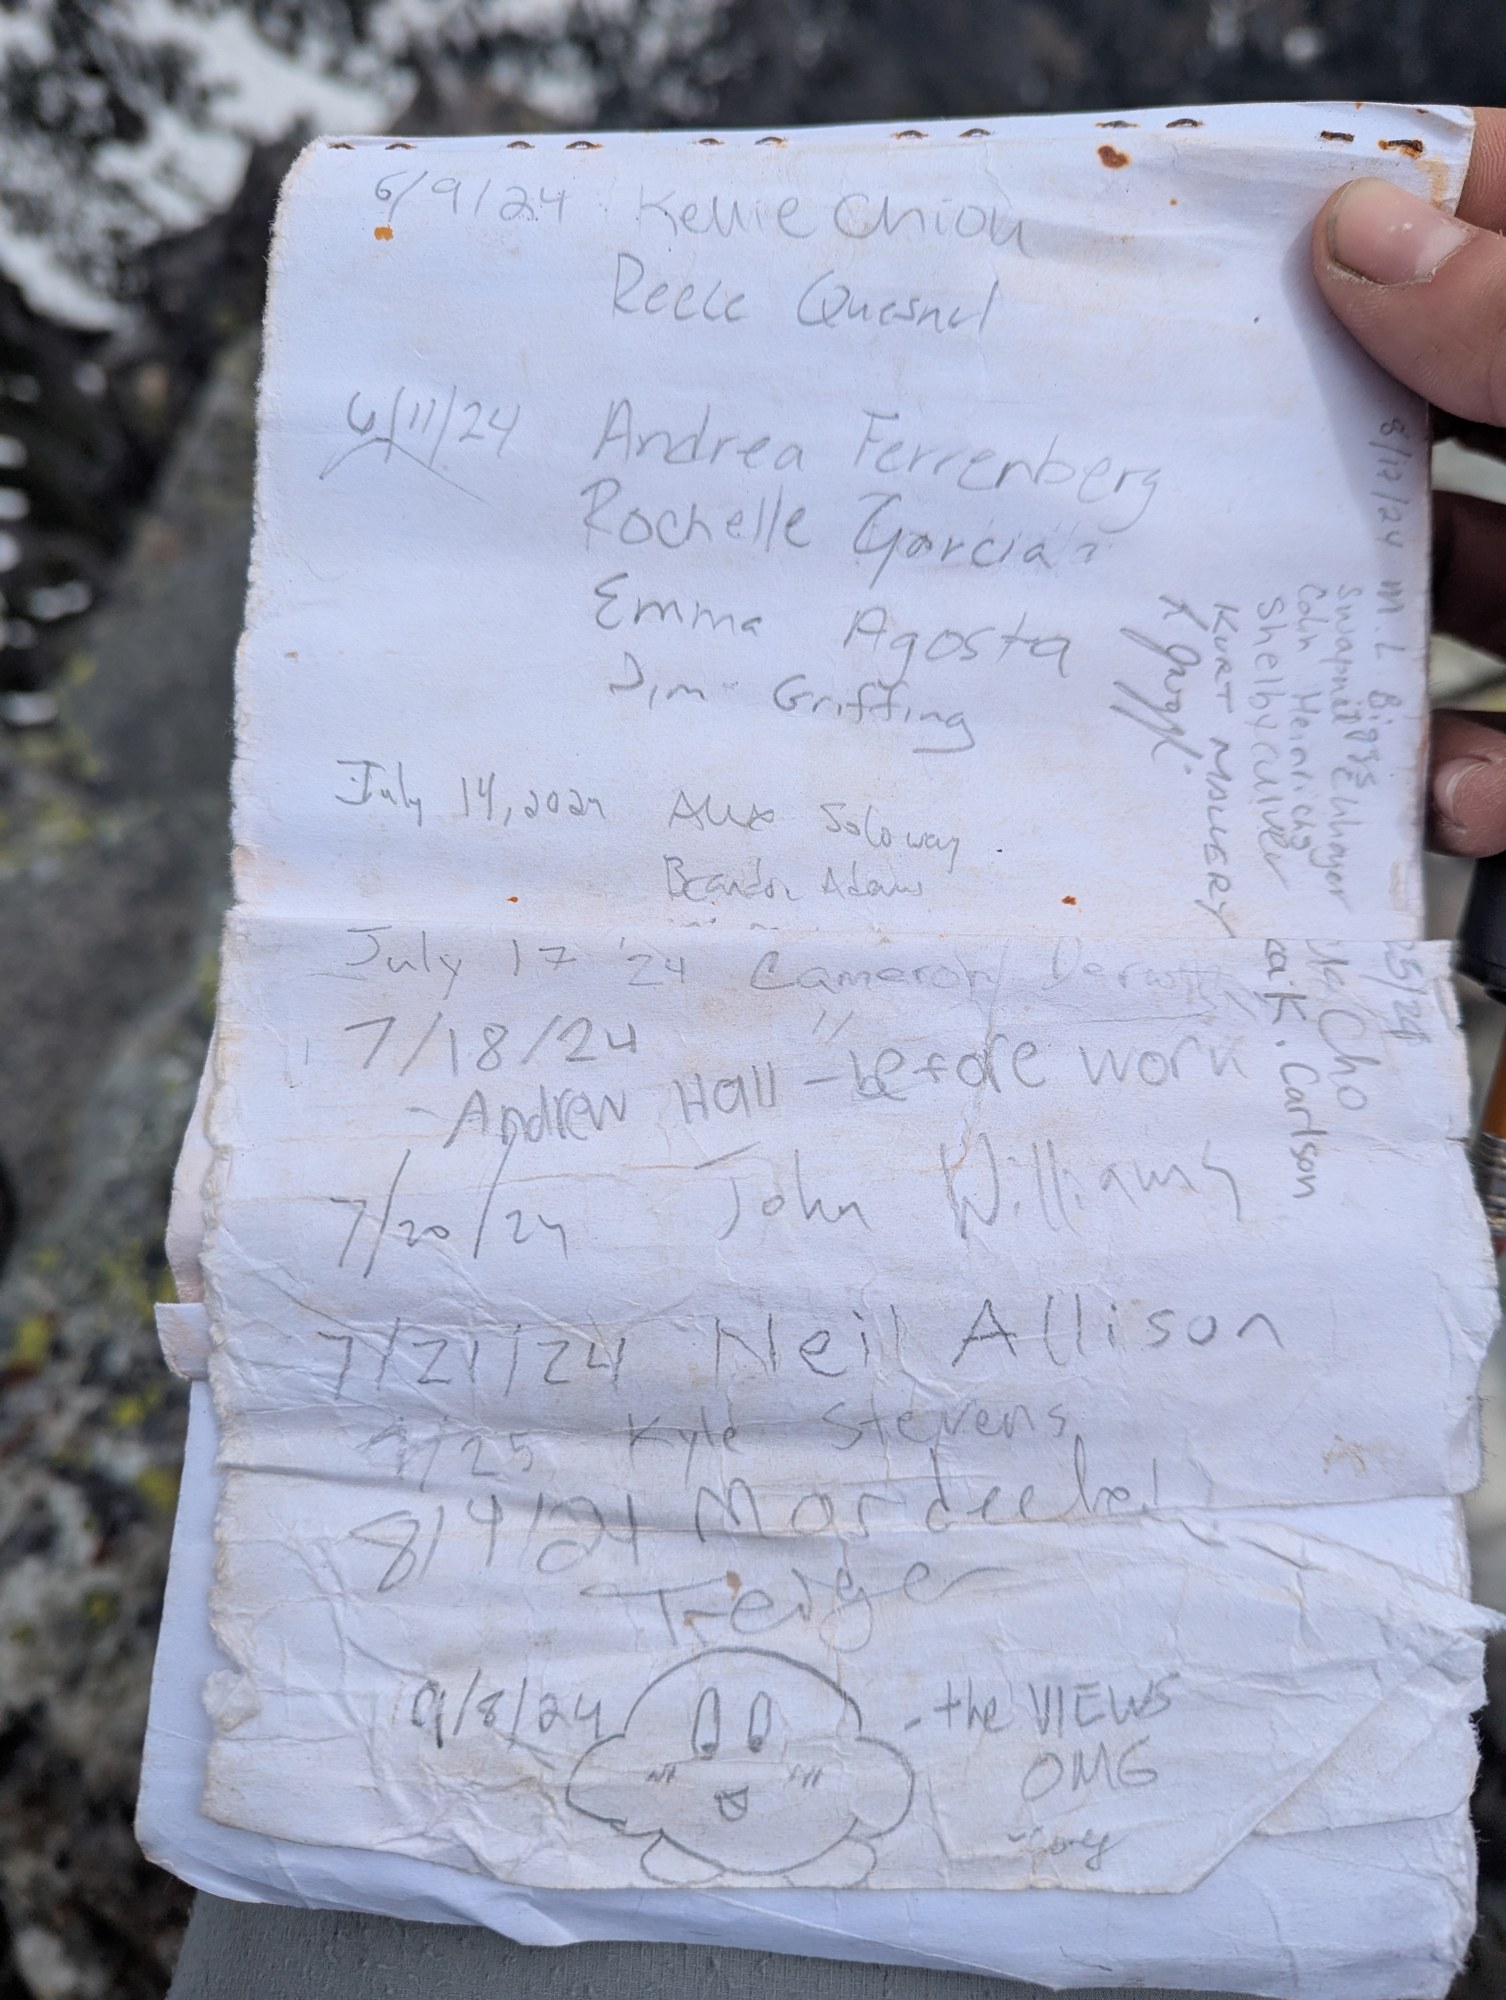 6/9/24 Kellie Chiou
Reece Quesnel
6/11/24 Andrea Ferrenberg
Rochelle Garcia
Emma Agosta
Jim Griffing
July 14, 2024 Alex Soloway
Brandon Adams
July 17 '24 Cameron
7/18/24 "
- Andrew Hall - before work
7/20/24 John Williams
7/21/24 Neil Allison
/25 Kyle Stevens
8/4/24 Mordechai
Teiger
9/8/24 - the VIEWS
OMG
8/12/24 M.L Biggs
Swapnil
Colin Heinrichs
Shelby Culver
KURT MALLERY
Cho
K. Carlson